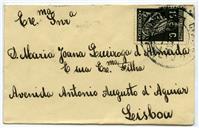 Exma Snra
D. Maria Joana Queiroga d'Almada
E sua Exma Filha
Avenida Antonio Augusto d'Aguiar
Lisboa